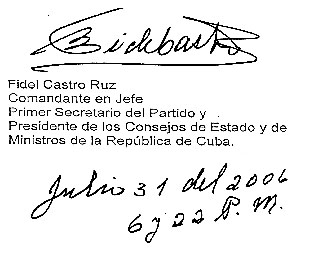 Fidel Castro Ruz
Comandante en Jefe
Primer Secretario del Partido y
Presidente de los Consejos de Estado y de
Ministros de la República de Cuba.
Julio 31 del 2006
6 y 22 P.M.